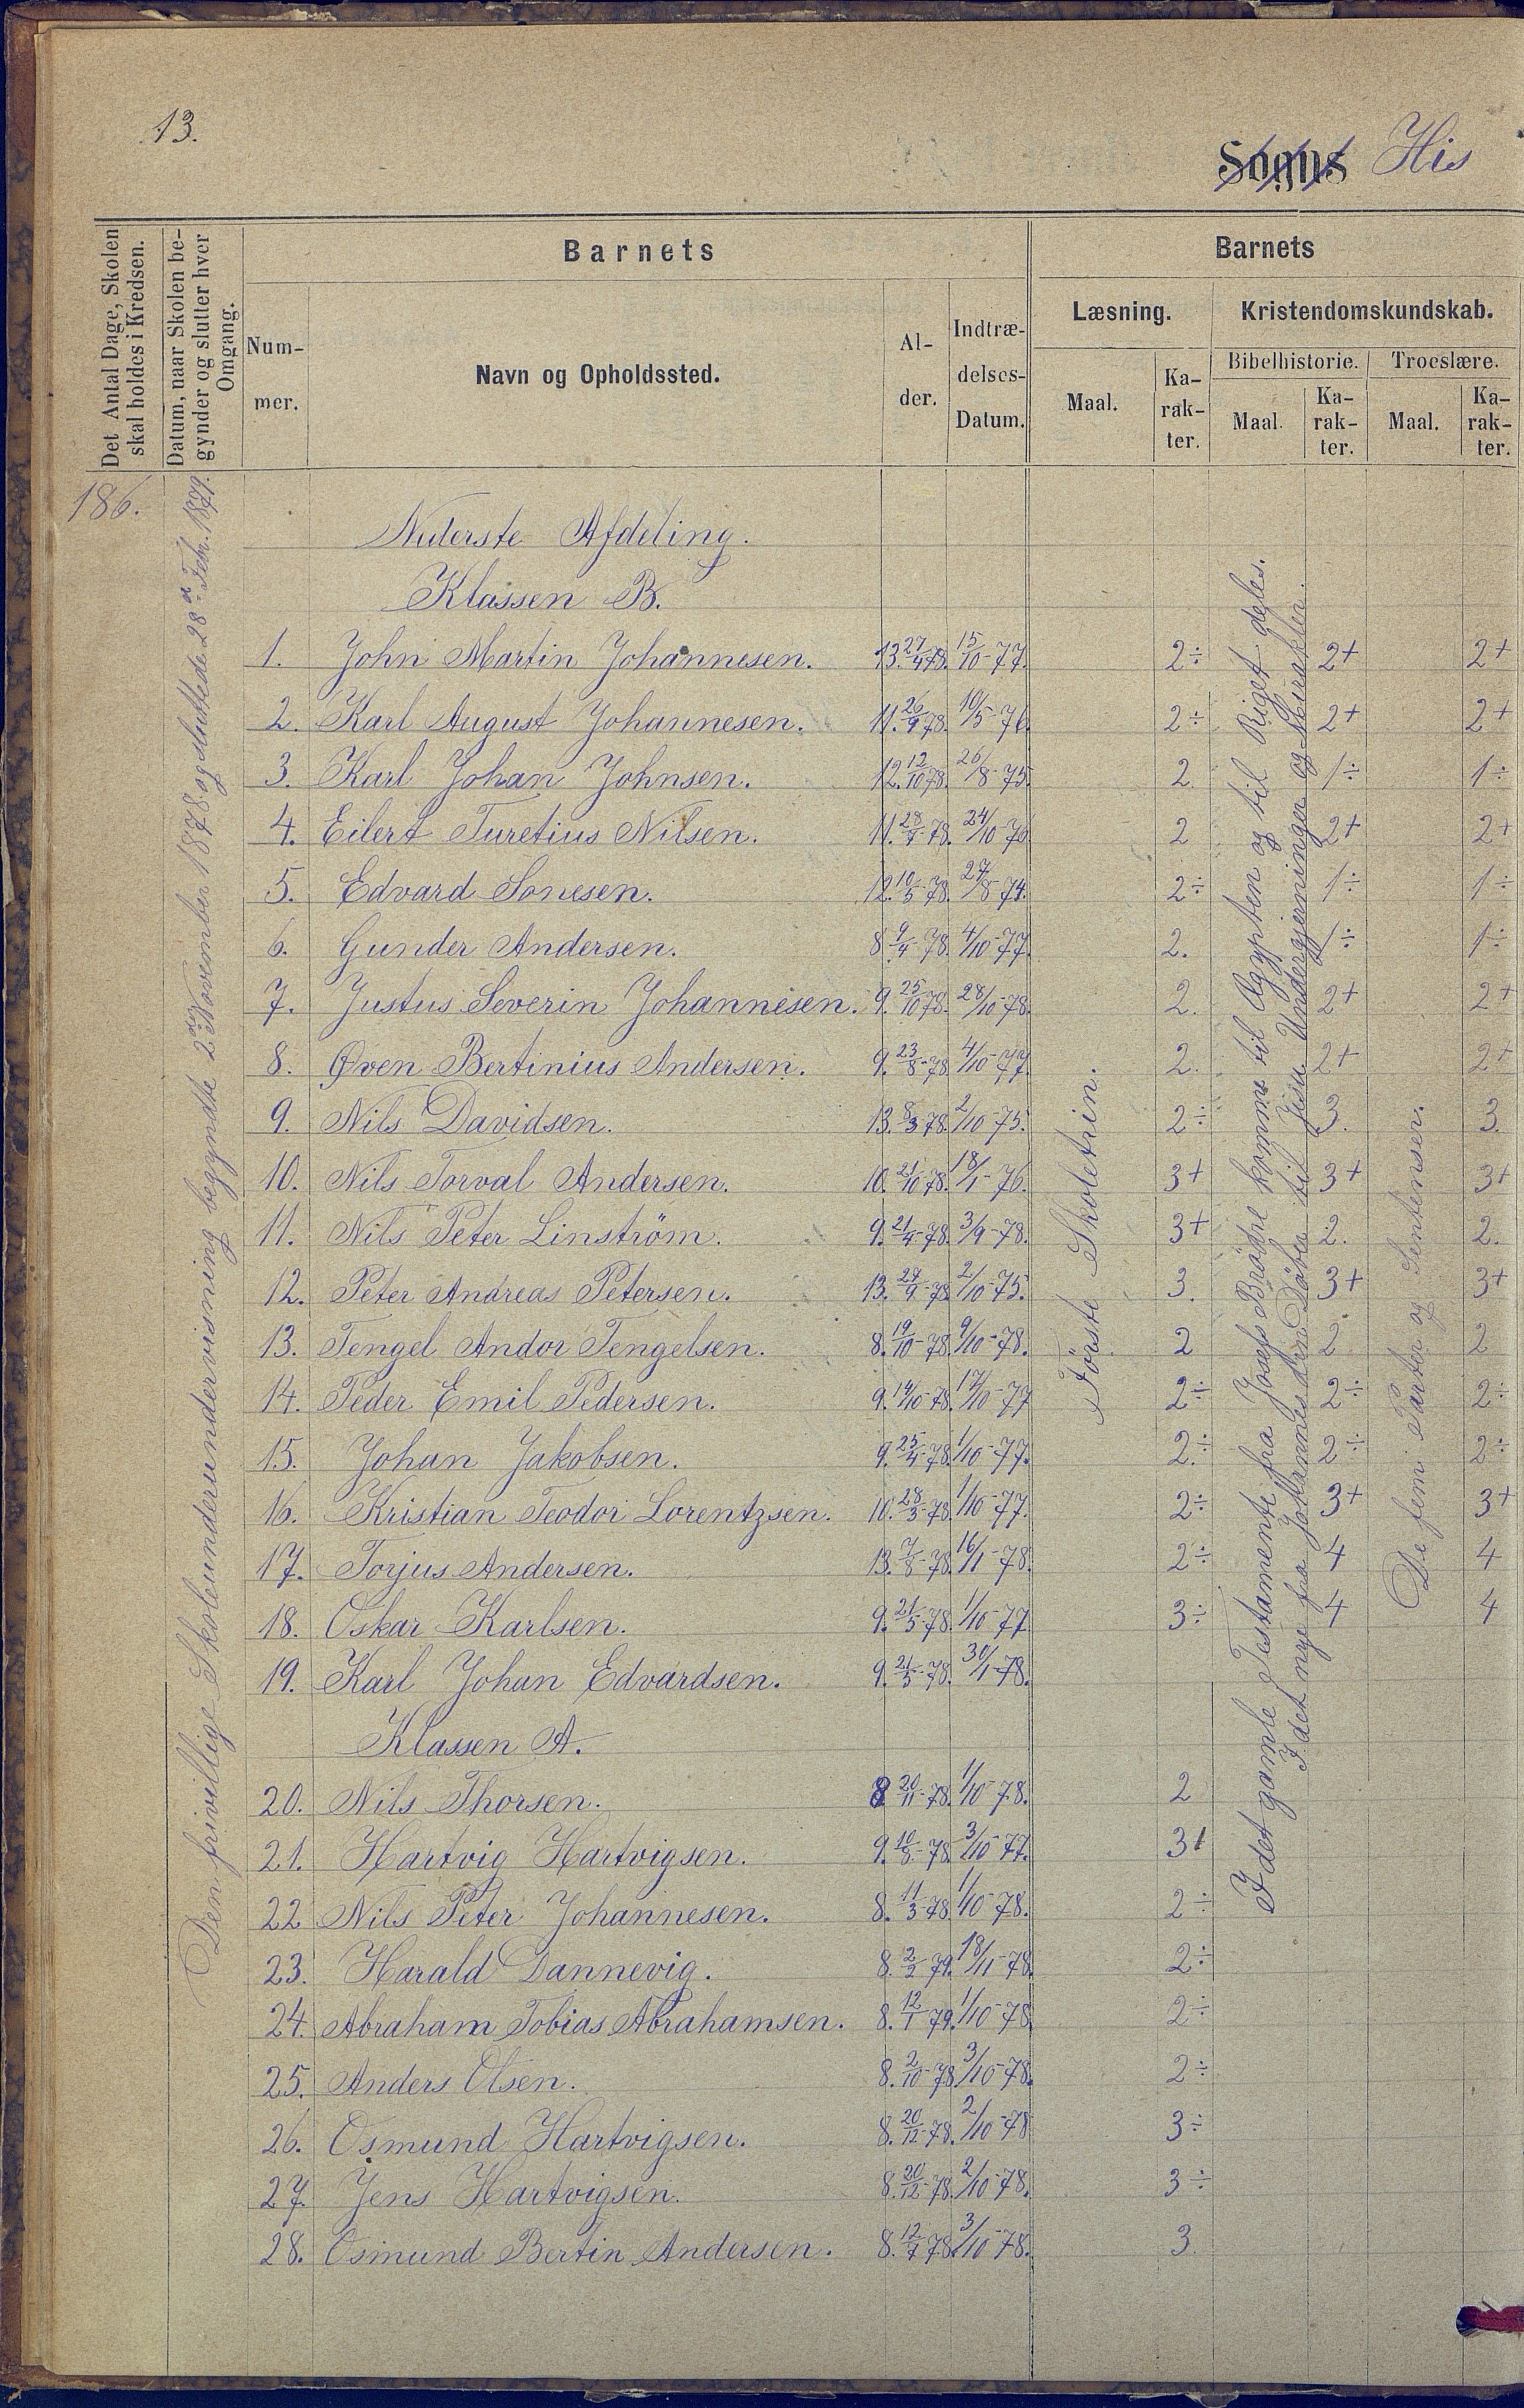 13.
Sogns His
Det Antal Dage, Skolen skal holdes i Kredsen.
Datum, naar Skolen begynder og slutter hver Omgang.
Barnets
Num-mer.
Navn og Opholdssted.
Al-der.
Indtræ-delses-Datum.
Barnets
Læsning.
Maal.
Ka-rak-ter.
Kristendomskundskab.
Bibelhistorie.
Maal.
Ka-rak-ter.
Troeslære.
Maal.
Ka-rak-ter.
186.
Den frivillige Skoleundersundervisning begyndte 2den November 1878 og sluttede 28de Febr. 1879.
Første Skoletrin.
I det gamle Testamente fra Josefs Brødre komme til Ægypten og til Riget deles.
I det nye fra Johannes den Døber til Jisu Undergjerninger og Mirakler.
De fem Parter og Sentenser.
Nederste Afdeling.
Klassen B.
1. John Martin Johannesen. 13. 27/4 78. 15/10-77. 2÷ 2+ 2+
2. Karl August Johannesen. 11. 26/9 78. 10/5-76. 2÷ 2+ 2+
3. Karl Johan Johnsen. 12. 12/10 78. 26/8-75. 2. 1÷ 1÷
4. Eilert Turetius Nilsen. 11. 28/7-78. 24/10-76 2 2+ 2+
5. Edvard Sonesen. 12. 10/5-78. 27/8-74. 2÷ 1÷ 1÷
6. Gunder Andersen. 8. 9/4-78. 4/10-77. 2. 1÷ 1÷
7. Justus Severin Johannesen. 9. 25/10 78. 28/10-78. 2. 2+ 2+
8. Øven Bertinius Andersen. 9. 23/8-78. 4/10-77. 2. 2+ 2+
9. Nils Davidsen. 13. 8/3 78. 2/10-75. 2÷ 3. 3.
10. Nils Torval Andersen. 10. 21/10 78. 18/1-76. 3+ 3+ 3+
11. Nils Peter Linström. 9. 21/4-78. 3/9-78. 3+ 2. 2.
12. Peter Andreas Petersen. 13. 27/9-78. 2/10-75. 3. 3+ 3+
13. Tengel Andor Tengelsen. 8. 19/10-78. 9/10-78. 2 2 2
14. Peder Emil Pedersen. 9. 14/10 78. 17/10-77 2÷ 2÷ 2÷
15. Johan Jakobsen. 9. 25/4-78. 1/10-77. 2÷ 2÷ 2÷
16. Kristian Teodor Lorentzsen. 10. 28/3-78. 1/10-77. 2÷ 3+ 3+
17. Torjus Andersen. 13. 7/8-78. 16/1-78. 2÷ 4 4
18. Oskar Karlsen. 9. 21/5-78. 1/10-77 3÷ 4 4
19. Karl Johan Edvardsen. 9. 21/5-78. 30/1-78.
Klassen A.
20. Nils Thorsen. 8 20/11-78. 1/10-78. 2
21. Hartvig Hartvigsen. 9. 10/8-78. 3/10-77. 3+
22 Nils Peter Johannesen. 8. 11/3-78. 1/10-78. 2÷
23. Harald Dannevig. 8. 2/2 79. 18/11-78. 2÷
24. Abraham Tobias Abrahamsen. 8. 12/1 79. 1/10-78. 2÷
25. Anders Olsen. 8. 2/10-78. 3/10-78. 2÷
26. Osmund Hartvigsen. 8. 20/12-78. 2/10-78 3÷
27. Jens Hartvigsen. 8. 20/12-78. 2/10-78. 3÷
28. Osmund Bertin Andersen. 8. 12/7 78. 3/10-78. 3.